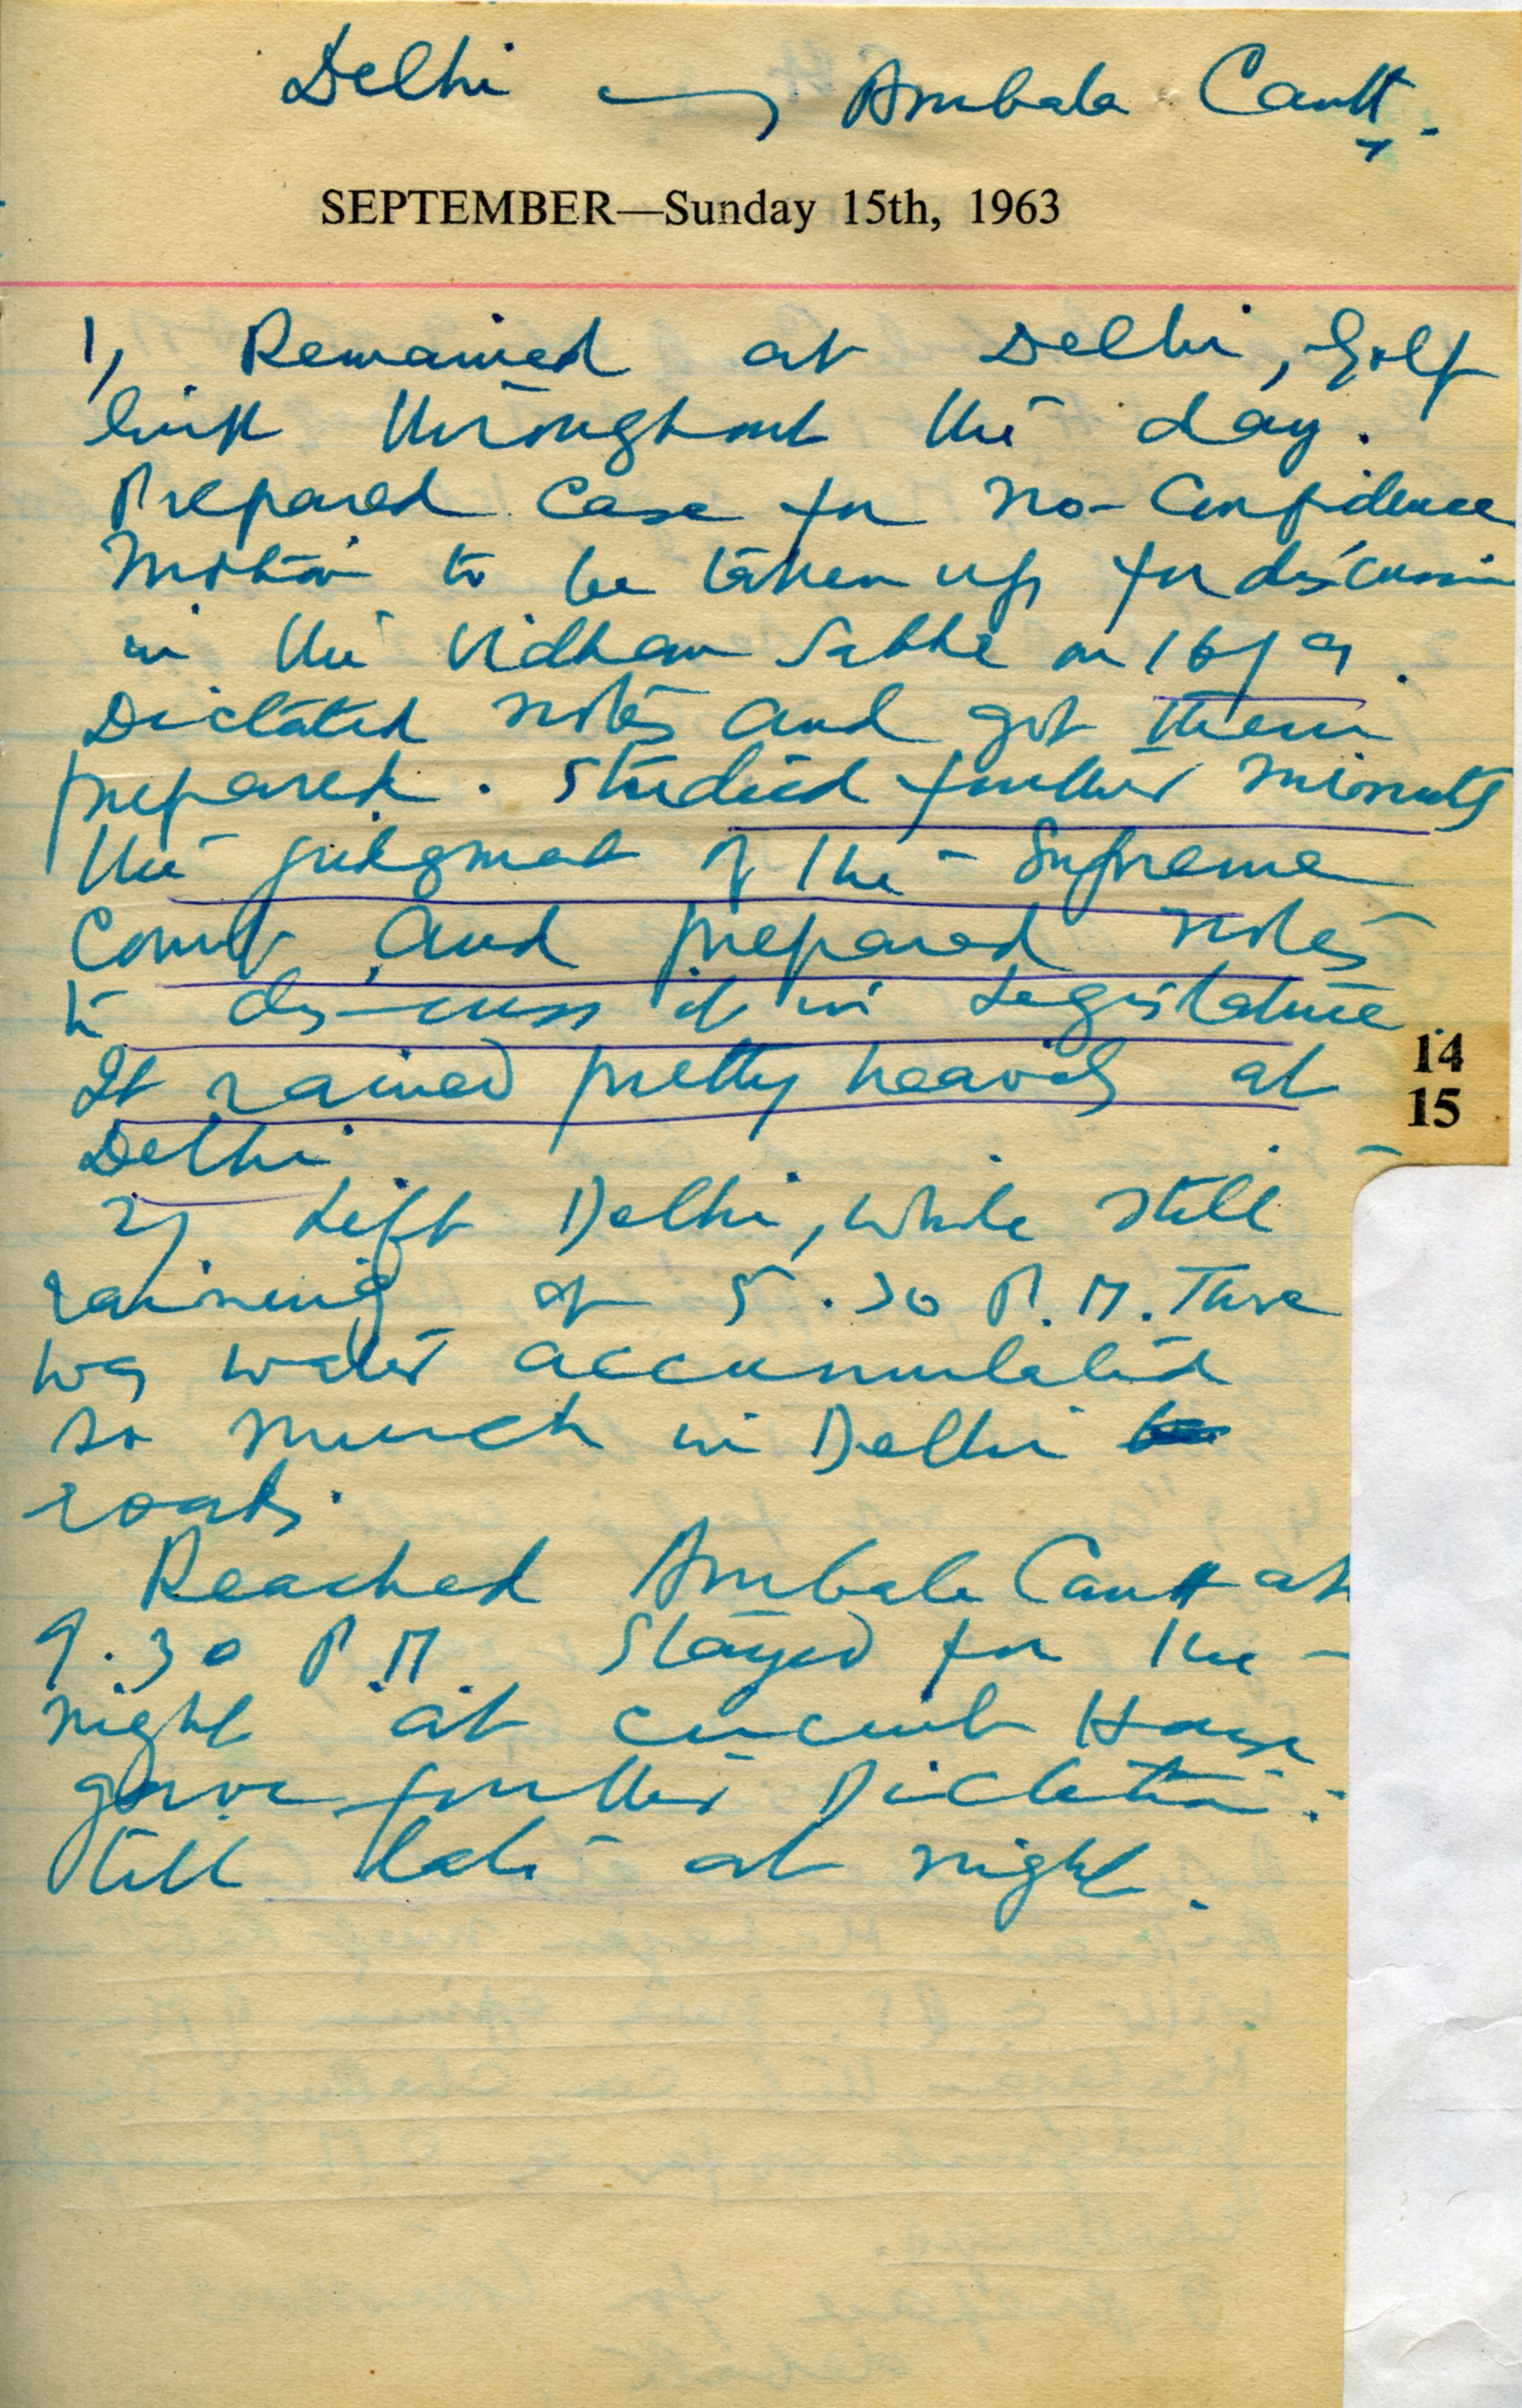 Delhi → Ambala Cantt.
SEPTEMBER—Sunday 15th, 1963
1, Remained at Delhi, Golf
link throughout the day.
Prepared Case for no-Confidence
Motion to be taken up for discussion
in the Vidhan Sabha on 16/9.
Dictated notes and got them
prepared. Studied further minutely
the judgment of the Supreme
Court and prepared notes
to discuss it in Legislature
It rained pretty heavily at
Delhi
2, Left Delhi, while still
raining at 5.30 P.M. There
was water accumulated
so much in Delhi
roads.
Reached Ambala Cantt at
9.30 P.M Stayed for the
night at circuit House
gave further Dictation
till late at night.
14
15